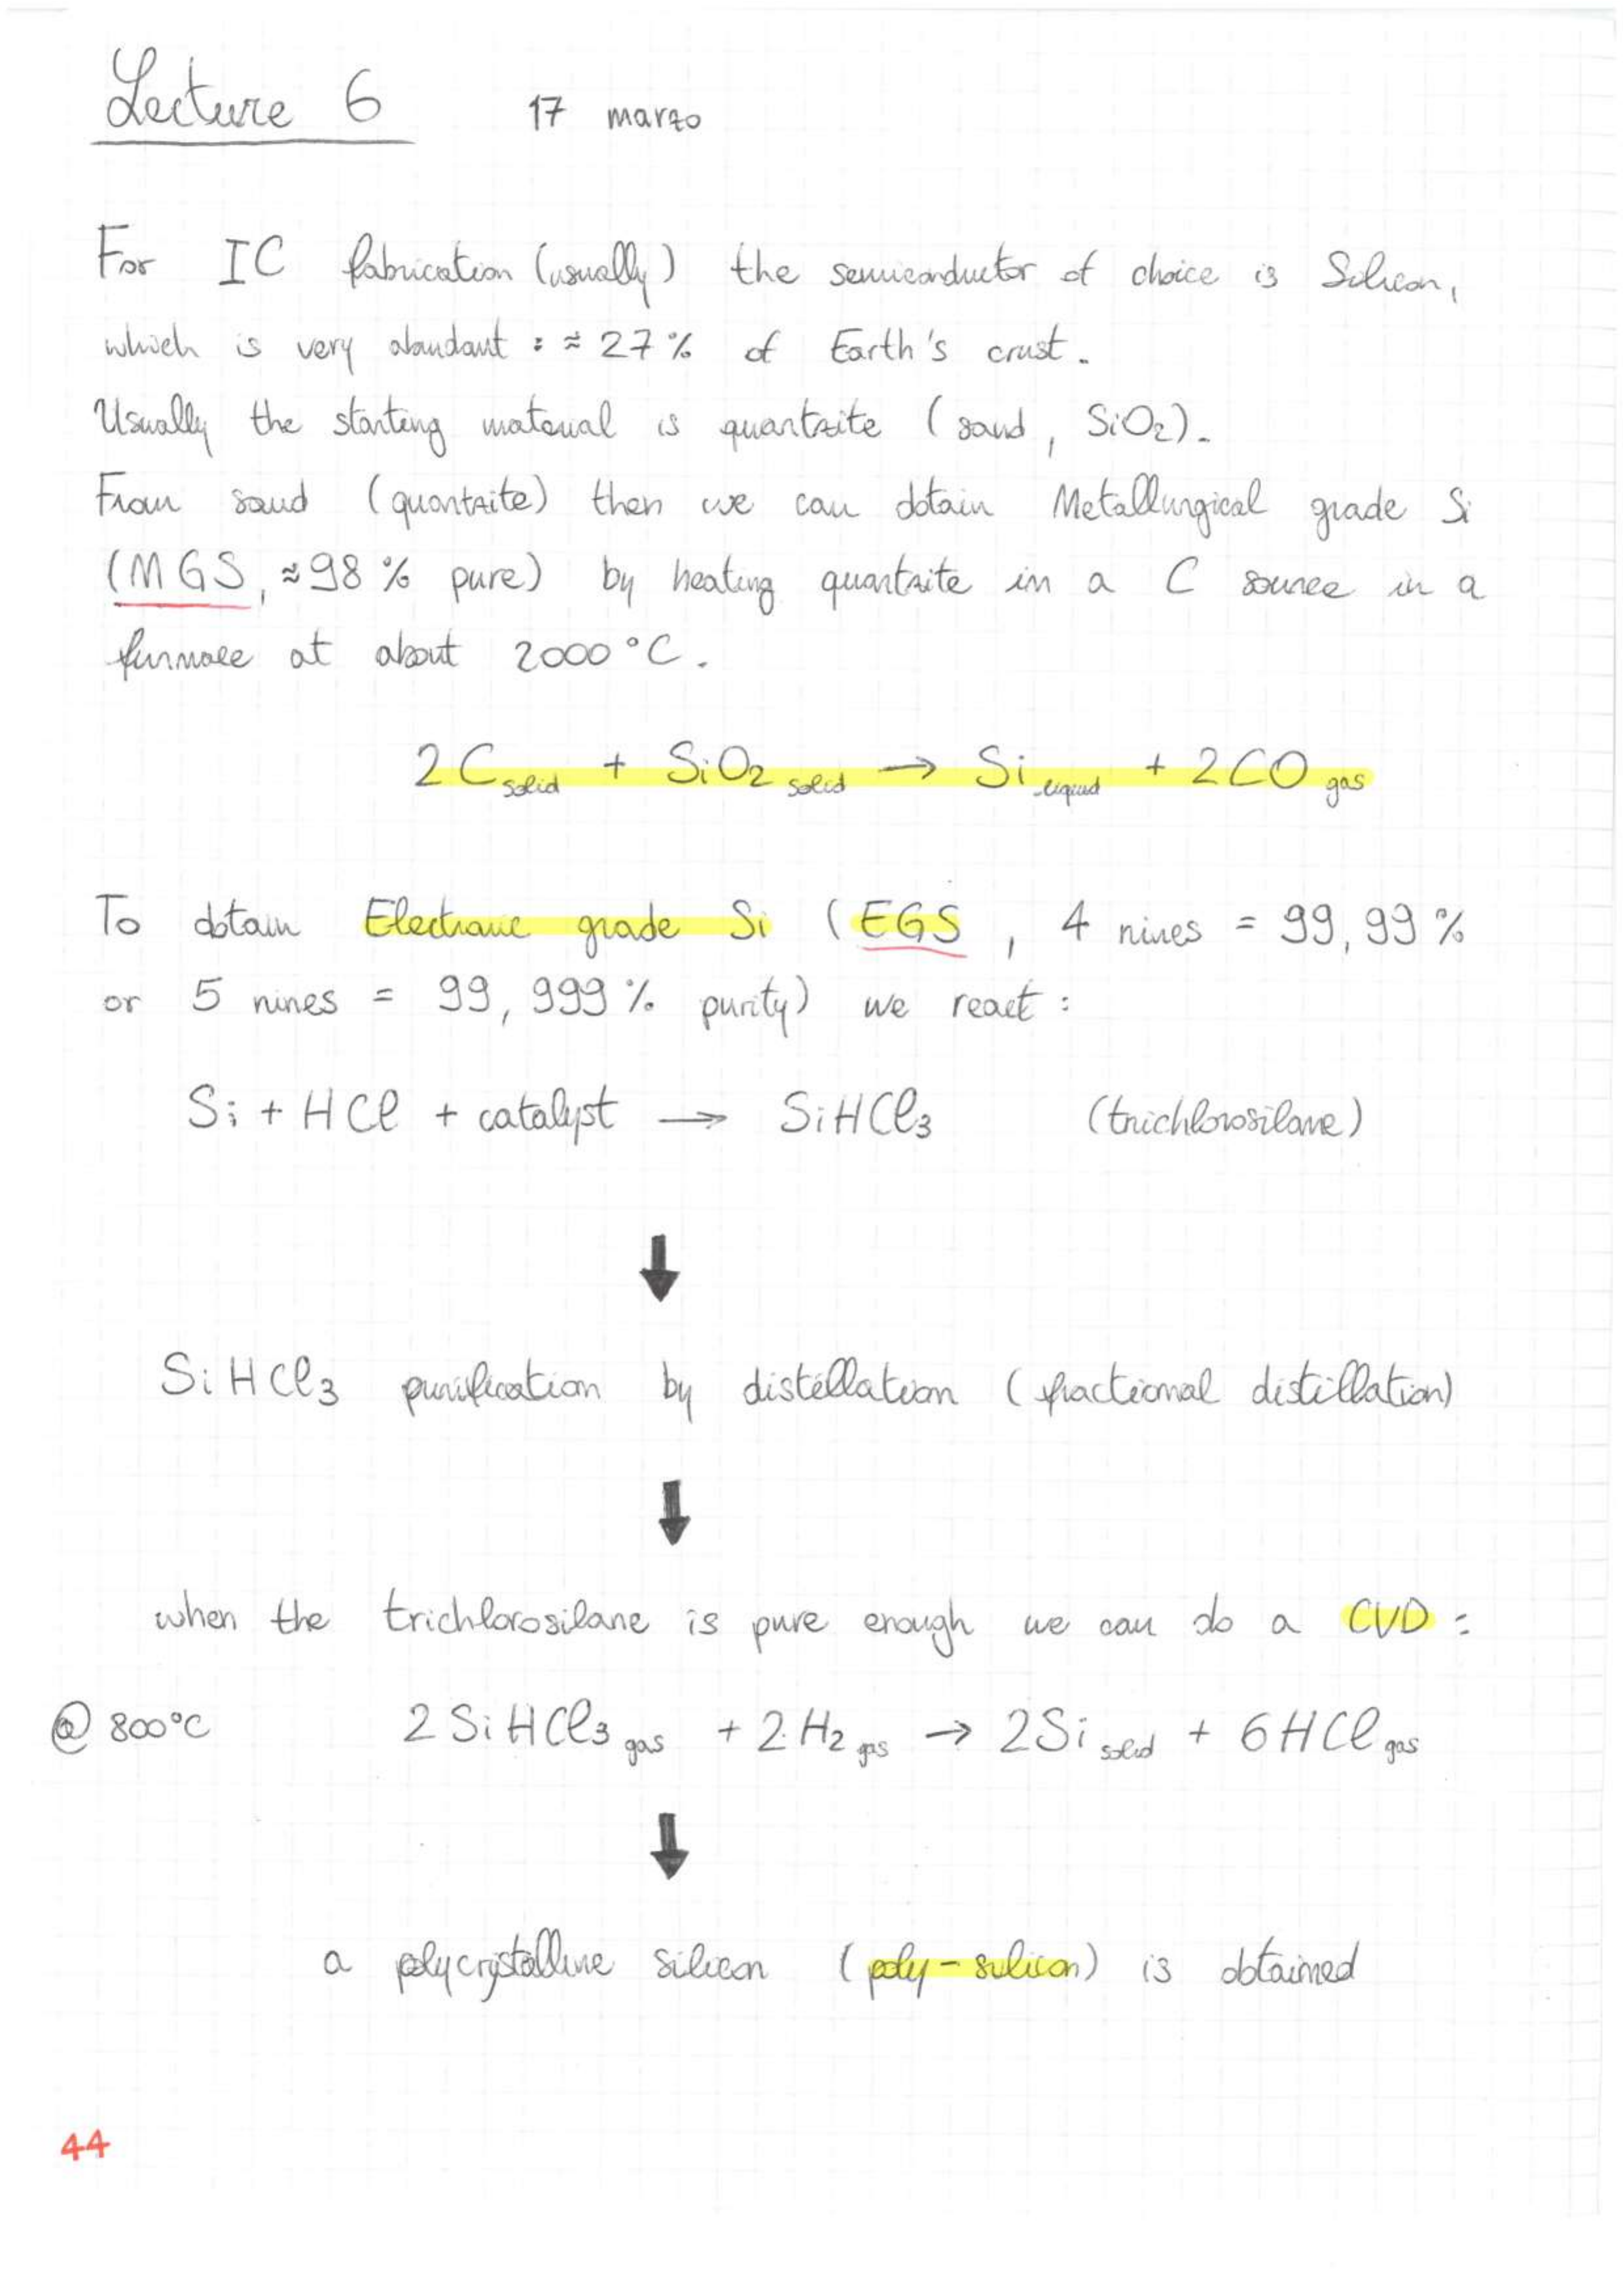 Lecture 6 17 marzo
For IC fabrication (usually) the semiconductor of choice is Silicon,
which is very abundant : ≈ 27% of Earth's crust.
Usually the starting material is quartzite (sand, SiO2).
From sand (quartzite) then we can obtain Metallurgical grade Si
(MGS, ≈98% pure) by heating quartzite in a C source in a
furnace at about 2000°C.
2 C solid + SiO2 solid → Si liquid + 2CO gas
To obtain Electronic grade Si (EGS, 4 nines = 99,99%
or 5 nines = 99,999% purity) we react :
Si + HCl + catalyst → SiHCl3 (trichlorosilane)
SiHCl3 purification by distillation (fractional distillation)
when the trichlorosilane is pure enough we can do a CVD :
@ 800°C 2 SiHCl3 gas + 2 H2 gas → 2Si solid + 6HCl gas
a polycrystalline silicon (poly-silicon) is obtained
44